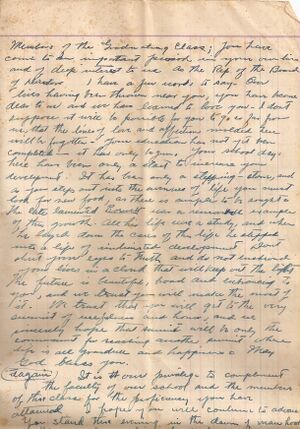 Members of the Graduating Class; You have
come to an important period in your own lives
and of deep interest to us. As the Rep of the Board
of I have a few words to say. Our
lives having been thrown near you, you have become
dear to us and we have learned to love you. I don't
suppose it will be possible for you to go so far from
us, that the lines of love and affection molded here
will be forgotten. Your education has not yet been
completed - it has only begun. Your school days
here have been only a start to increase your
development. It has been only a stepping-stone, and
as you step out into the avenues of life you must
look for new food, as there is ample to be sought
The late lamented was a reasonable example
of this growth. All his life was a study, and when
he laid down the cares of this life he stepped
into a life of development. Don't
shut your eyes to Truth and do not enshroud
your lives in a cloud that will keep out the light
The future is beautiful, broad and enhancing to
you, and we trust you will make the most of
it. We trust that you will get to the very
summit of usefulness and honor, and we
sincerely hope that summit will be only the
for reaching another summit where
life is all grandeur and happiness. May
God bless you.
(Again) It is our privilege to compliment
the faculty of our school and the members
of this class for the proficiency you have
attained. I hope you will continue to advance
You stand this evening in the dawn of manhood